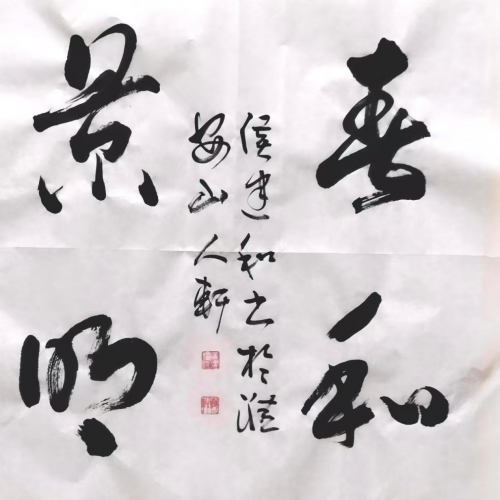 春和
景明
侯建和书於淮
安山人軒